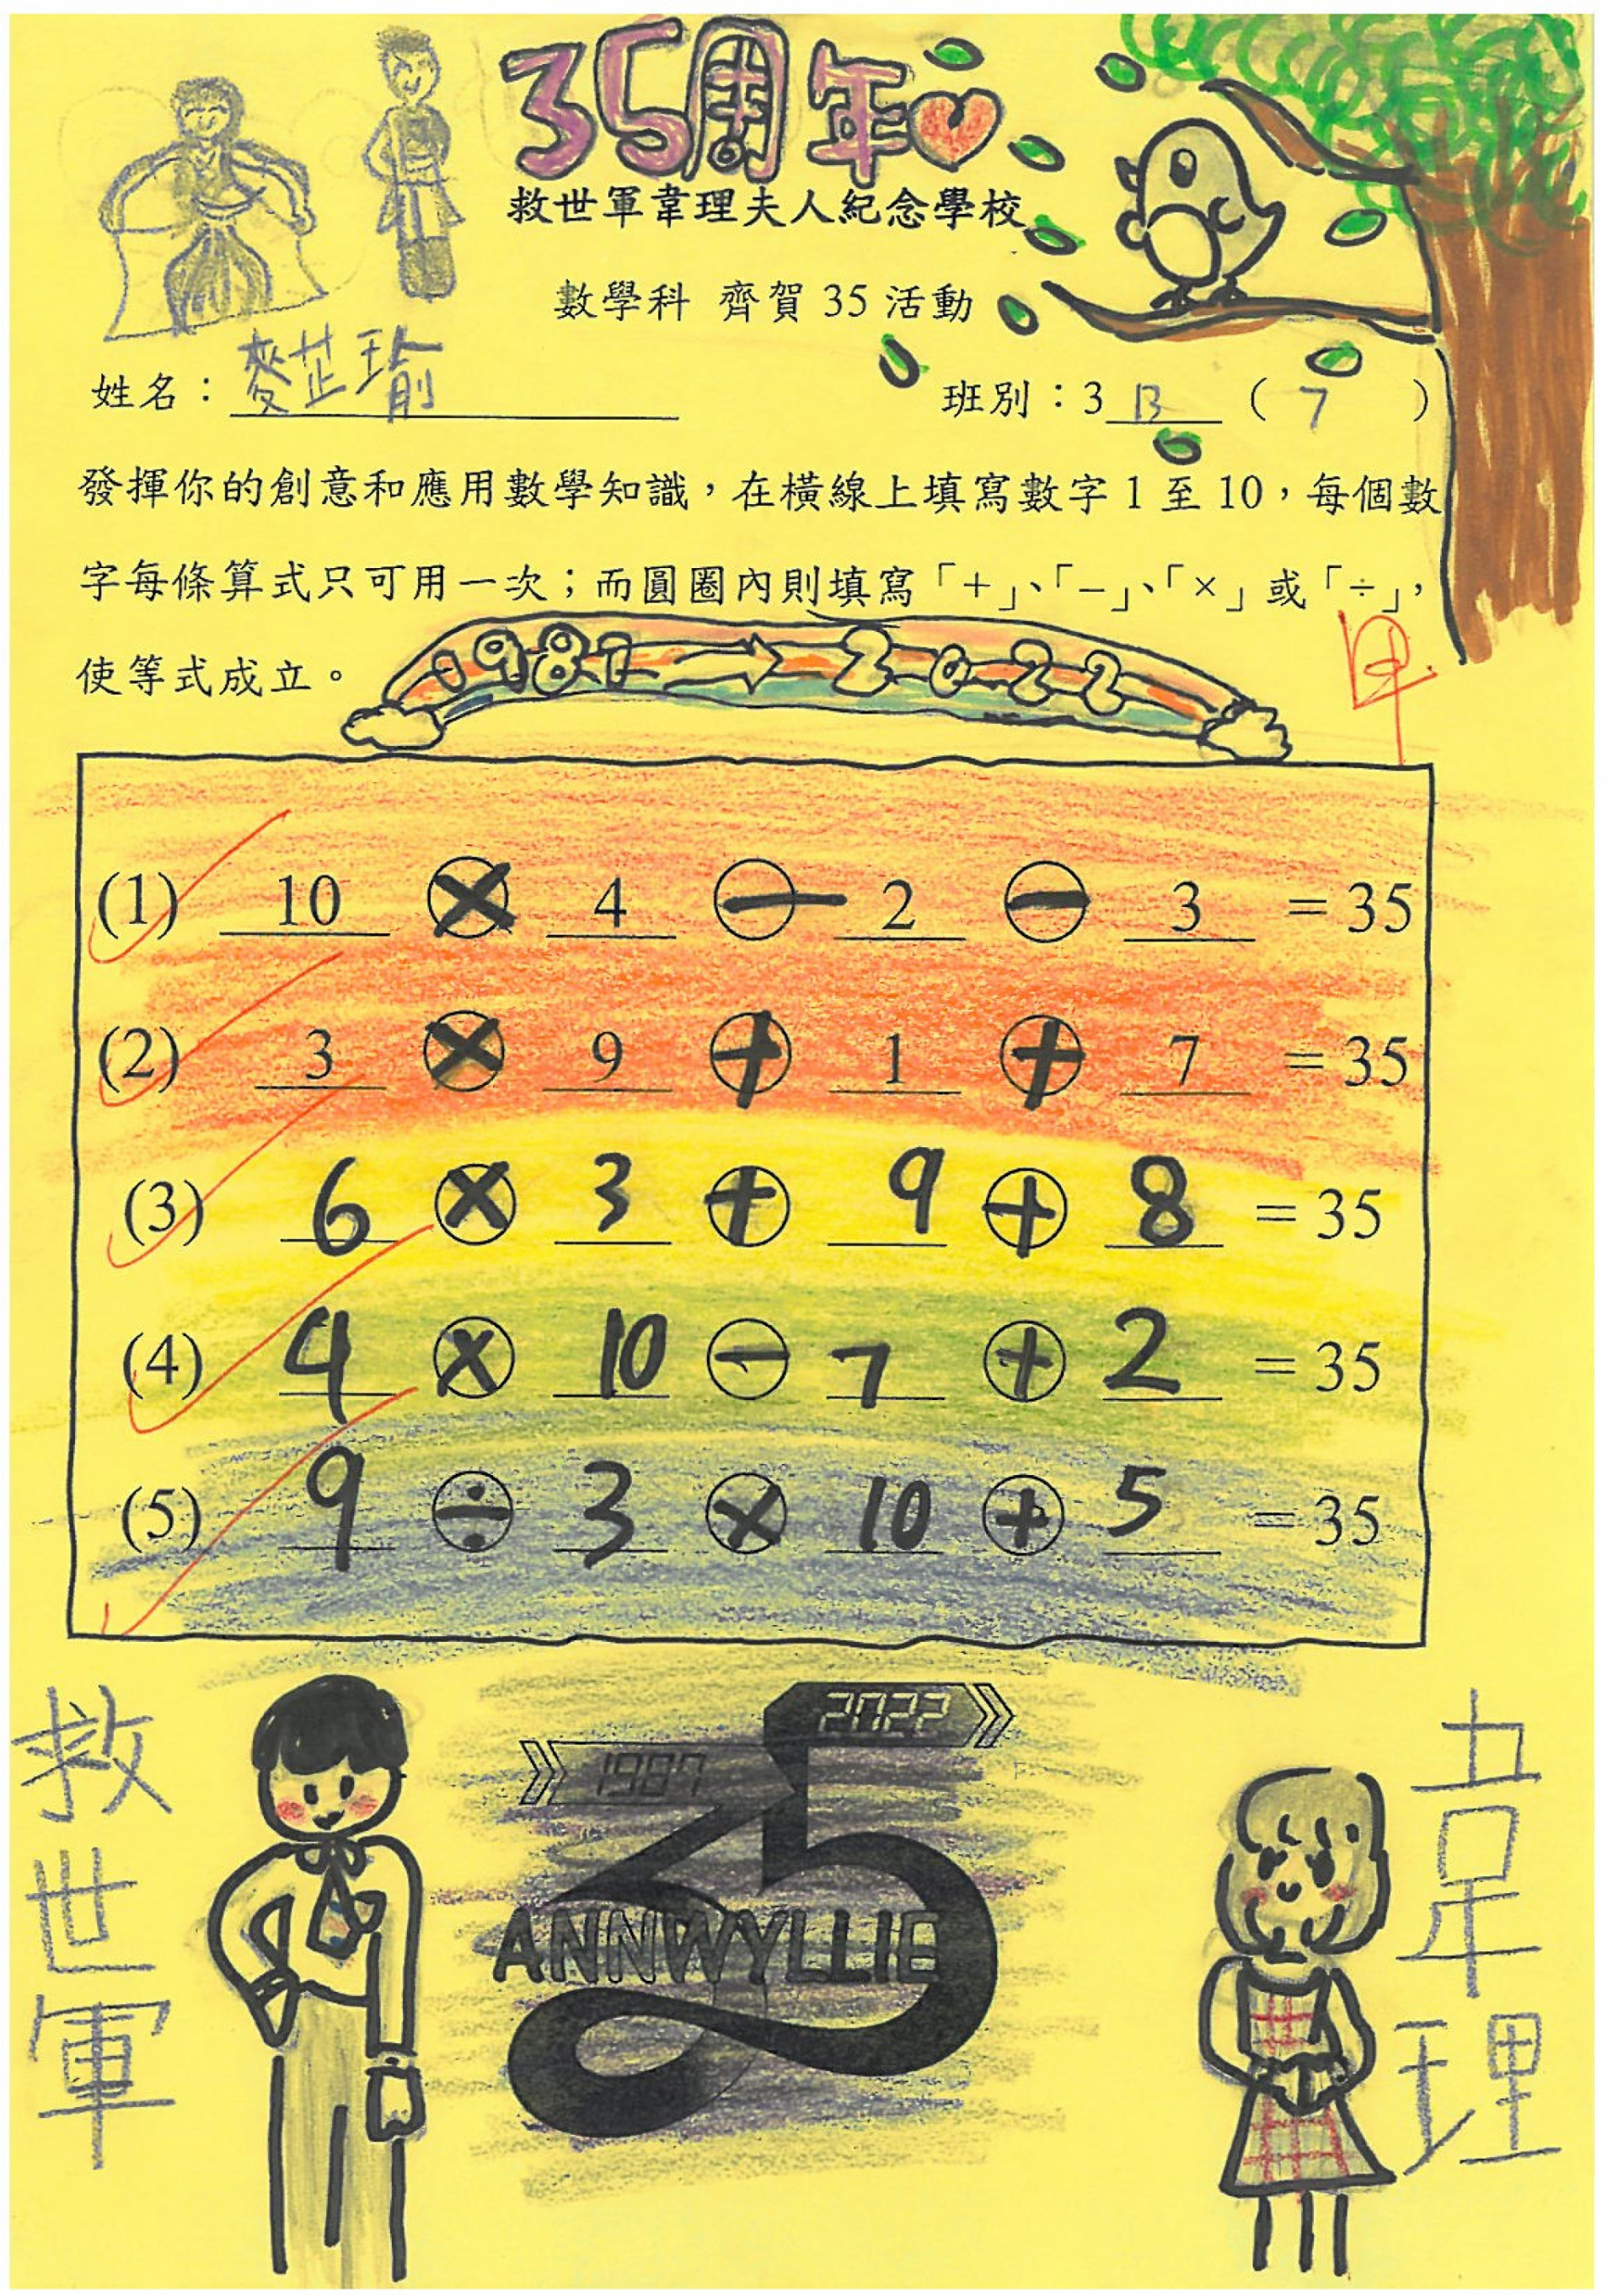 35周年
救世軍韋理夫人紀念學校
數學科 齊賀 35 活動
姓名：麥芷瑜
班別：3 B ( 7 )
發揮你的創意和應用數學知識，在橫線上填寫數字 1 至 10，每個數
字每條算式只可用一次；而圓圈內則填寫「+」、「−」、「×」或「÷」，
使等式成立。
1987 → 2022
(1) 10 × 4 − 2 − 3 = 35
(2) 3 × 9 + 1 + 7 = 35
(3) 6 × 3 + 9 + 8 = 35
(4) 4 × 10 − 7 + 2 = 35
(5) 9 ÷ 3 × 10 + 5 = 35
救世軍
1987
2022
35
ANNWYLLIE
韋理